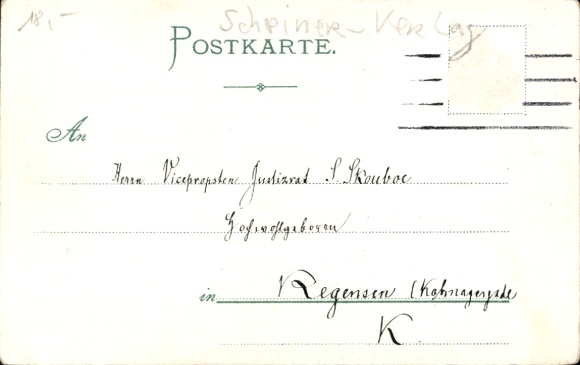 18,-
Scheiner-Verlag
POSTKARTE.
An
Herrn Vicepropsten Justizrat S. Skouboe
Hochwohlgeboren
in Regensen (Kobmagergade
K.